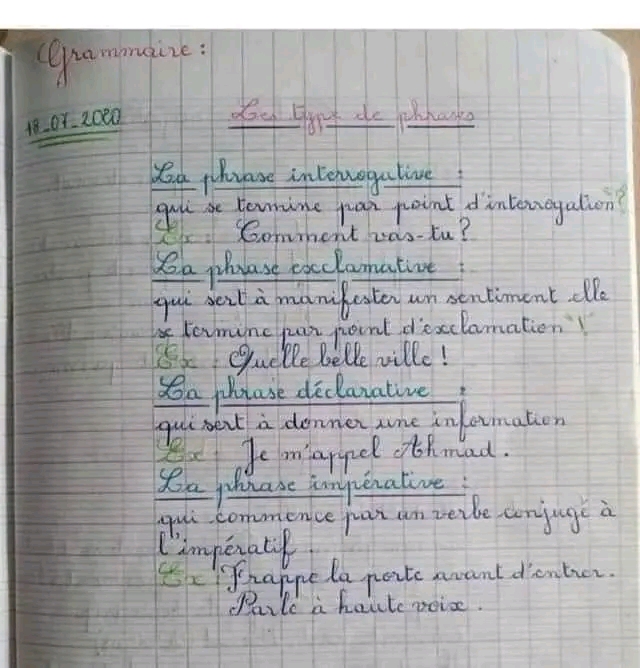 Grammaire :
18_07_2020
Les type de phrases
La phrase interrogative :
qui se termine par point d'interrogation"?
Ex : Comment vas-tu ?
La phrase exclamative :
qui sert à manifester un sentiment elle
se termine par point d'exclamation "!"
Ex : Quelle belle ville !
La phrase déclarative :
qui sert à donner une information
Ex : Je m'appel Ahmad .
La phrase impérative :
qui commence par un verbe conjugé à
l'impératif .
Ex : Frappe la porte avant d'entrer .
Parle à haute voix .